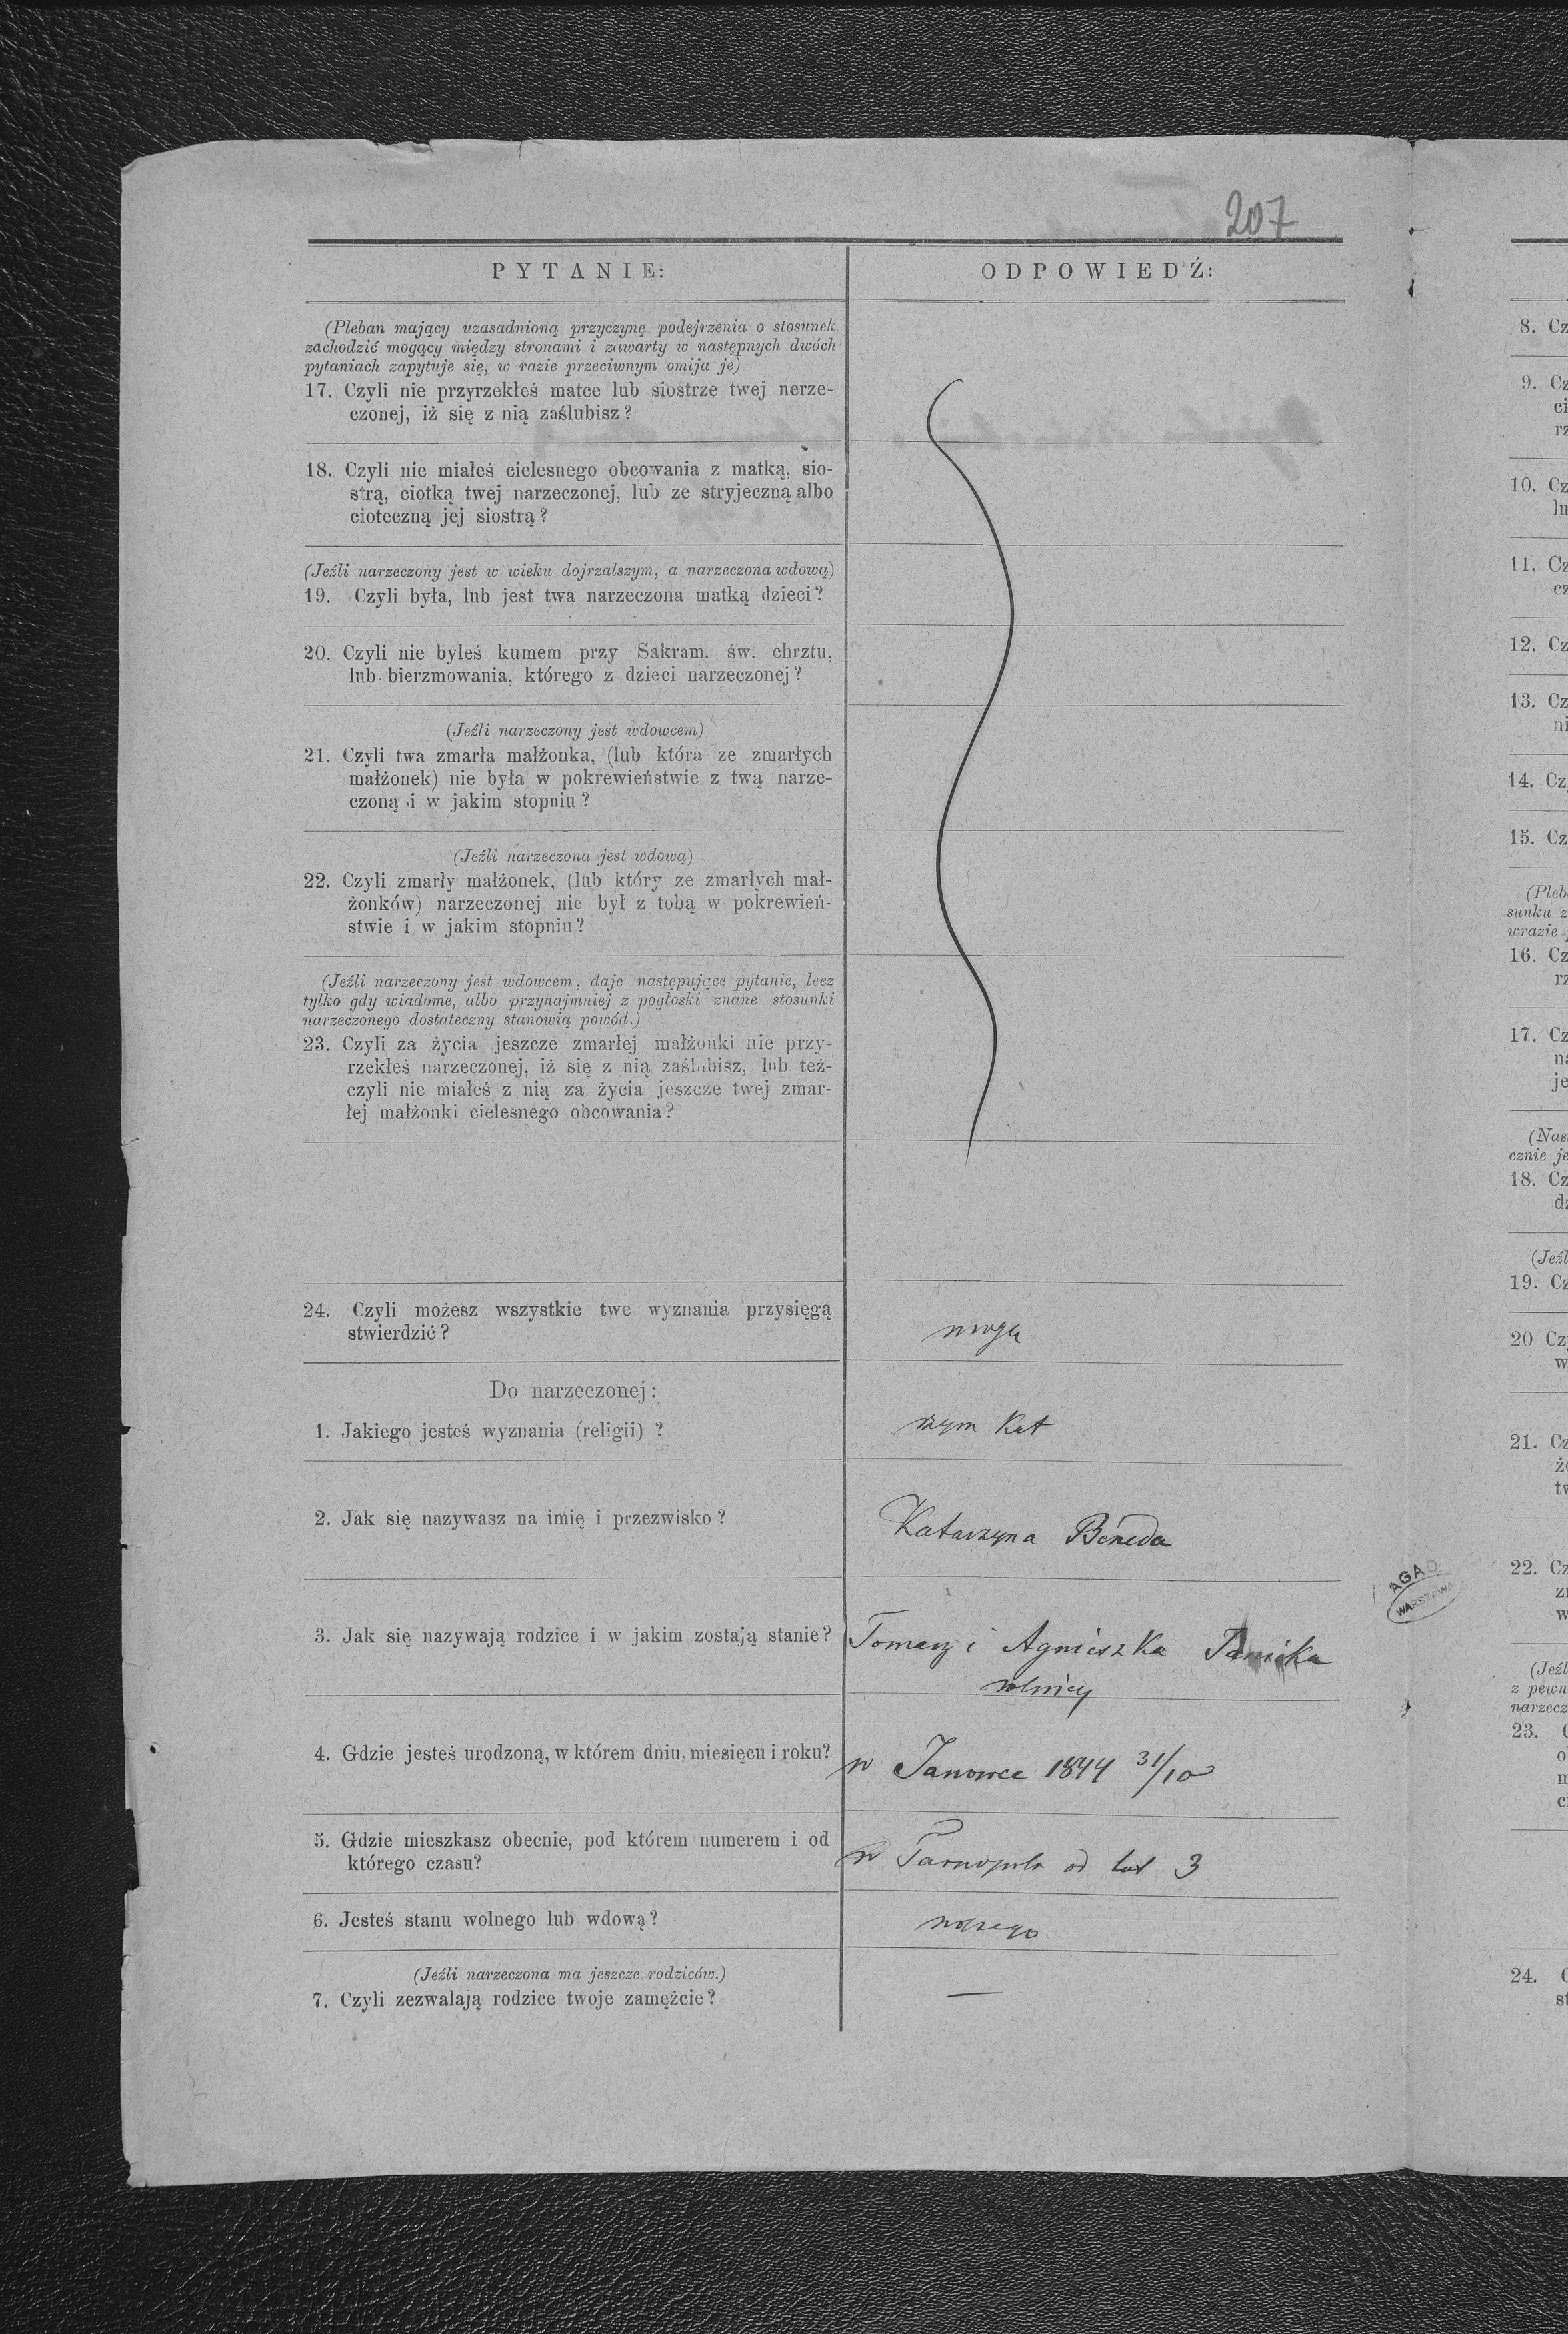 207
PYTANIE:
ODPOWIEDŹ:
(Pleban mający uzasadnioną przyczynę podejrzenia o stosunek
zachodzić mogący między stronami i zawarty w następnych dwóch
pytaniach zapytuje się, w razie przeciwnym omija je)
17. Czyli nie przyrzekłeś matce lub siostrze twej nerze-
czonej, iż się z nią zaślubisz?
18. Czyli nie miałeś cielesnego obcowania z matką, sio-
strą, ciotką twej narzeczonej, lub ze stryjeczną albo
cioteczną jej siostrą?
(Jeźli narzeczony jest w wieku dojrzalszym, a narzeczona wdową)
19. Czyli była, lub jest twa narzeczona matką dzieci?
20. Czyli nie byleś kumem przy Sakram. św. chrztu,
lub bierzmowania, którego z dzieci narzeczonej?
(Jeźli narzeczony jest wdowcem)
21. Czyli twa zmarła małżonka, (lub która ze zmarłych
małżonek) nie była w pokrewieństwie z twą narze-
czoną i w jakim stopniu?
(Jeźli narzeczona jest wdową)
22. Czyli zmarły małżonek, (lub który ze zmarłych mał-
żonków) narzeczonej nie był z tobą w pokrewień-
stwie i w jakim stopniu?
(Jeźli narzeczony jest wdowcem, daje następujące pytanie, lecz
tylko gdy wiadome, albo przynajmniej z pogłoski znane stosunki
narzeczonego dostateczny stanowią powód.)
23. Czyli za życia jeszcze zmarłej małżonki nie przy-
rzekłeś narzeczonej, iż się z nią zaślubisz, lub też-
czyli nie miałeś z nią za życia jeszcze twej zmar-
łej małżonki cielesnego obcowania?
24. Czyli możesz wszystkie twe wyznania przysięgą
stwierdzić?
mogę
Do narzeczonej:
1. Jakiego jesteś wyznania (religii) ?
rzym Kat
2. Jak się nazywasz na imię i przezwisko?
Katarzyna Beneda
3. Jak się nazywają rodzice i w jakim zostają stanie?
Tomasz i Agnieszka
rolnicy
4. Gdzie jesteś urodzoną, w którem dniu, miesięcu i roku?
w Janowce 1844 31/10
5. Gdzie mieszkasz obecnie, pod którem numerem i od
którego czasu?
w Tarnopolu od lat 3
6. Jesteś stanu wolnego lub wdową?
wolnego
(Jeźli narzeczona ma jeszcze rodziców.)
7. Czyli zezwalają rodzice twoje zamężcie?
—
AGAD
WARSZAWA
8. Cz
9. Cz
ci
rz
10. Cz
lu
11. Cz
cz
12. Cz
13. Cz
ni
14. Cz
15. Cz
(Pleb
sunku z
wrazie
16. Cz
rz
17. Cz
na
je
(Nas
cznie je
18. Cz
dz
(Jeźl
19. Cz
20 Cz
w
21. Cz
żo
tw
22. Cz
zn
w
(Jeźl
z pewn
narzecz
23.
o
m
c
24.
st